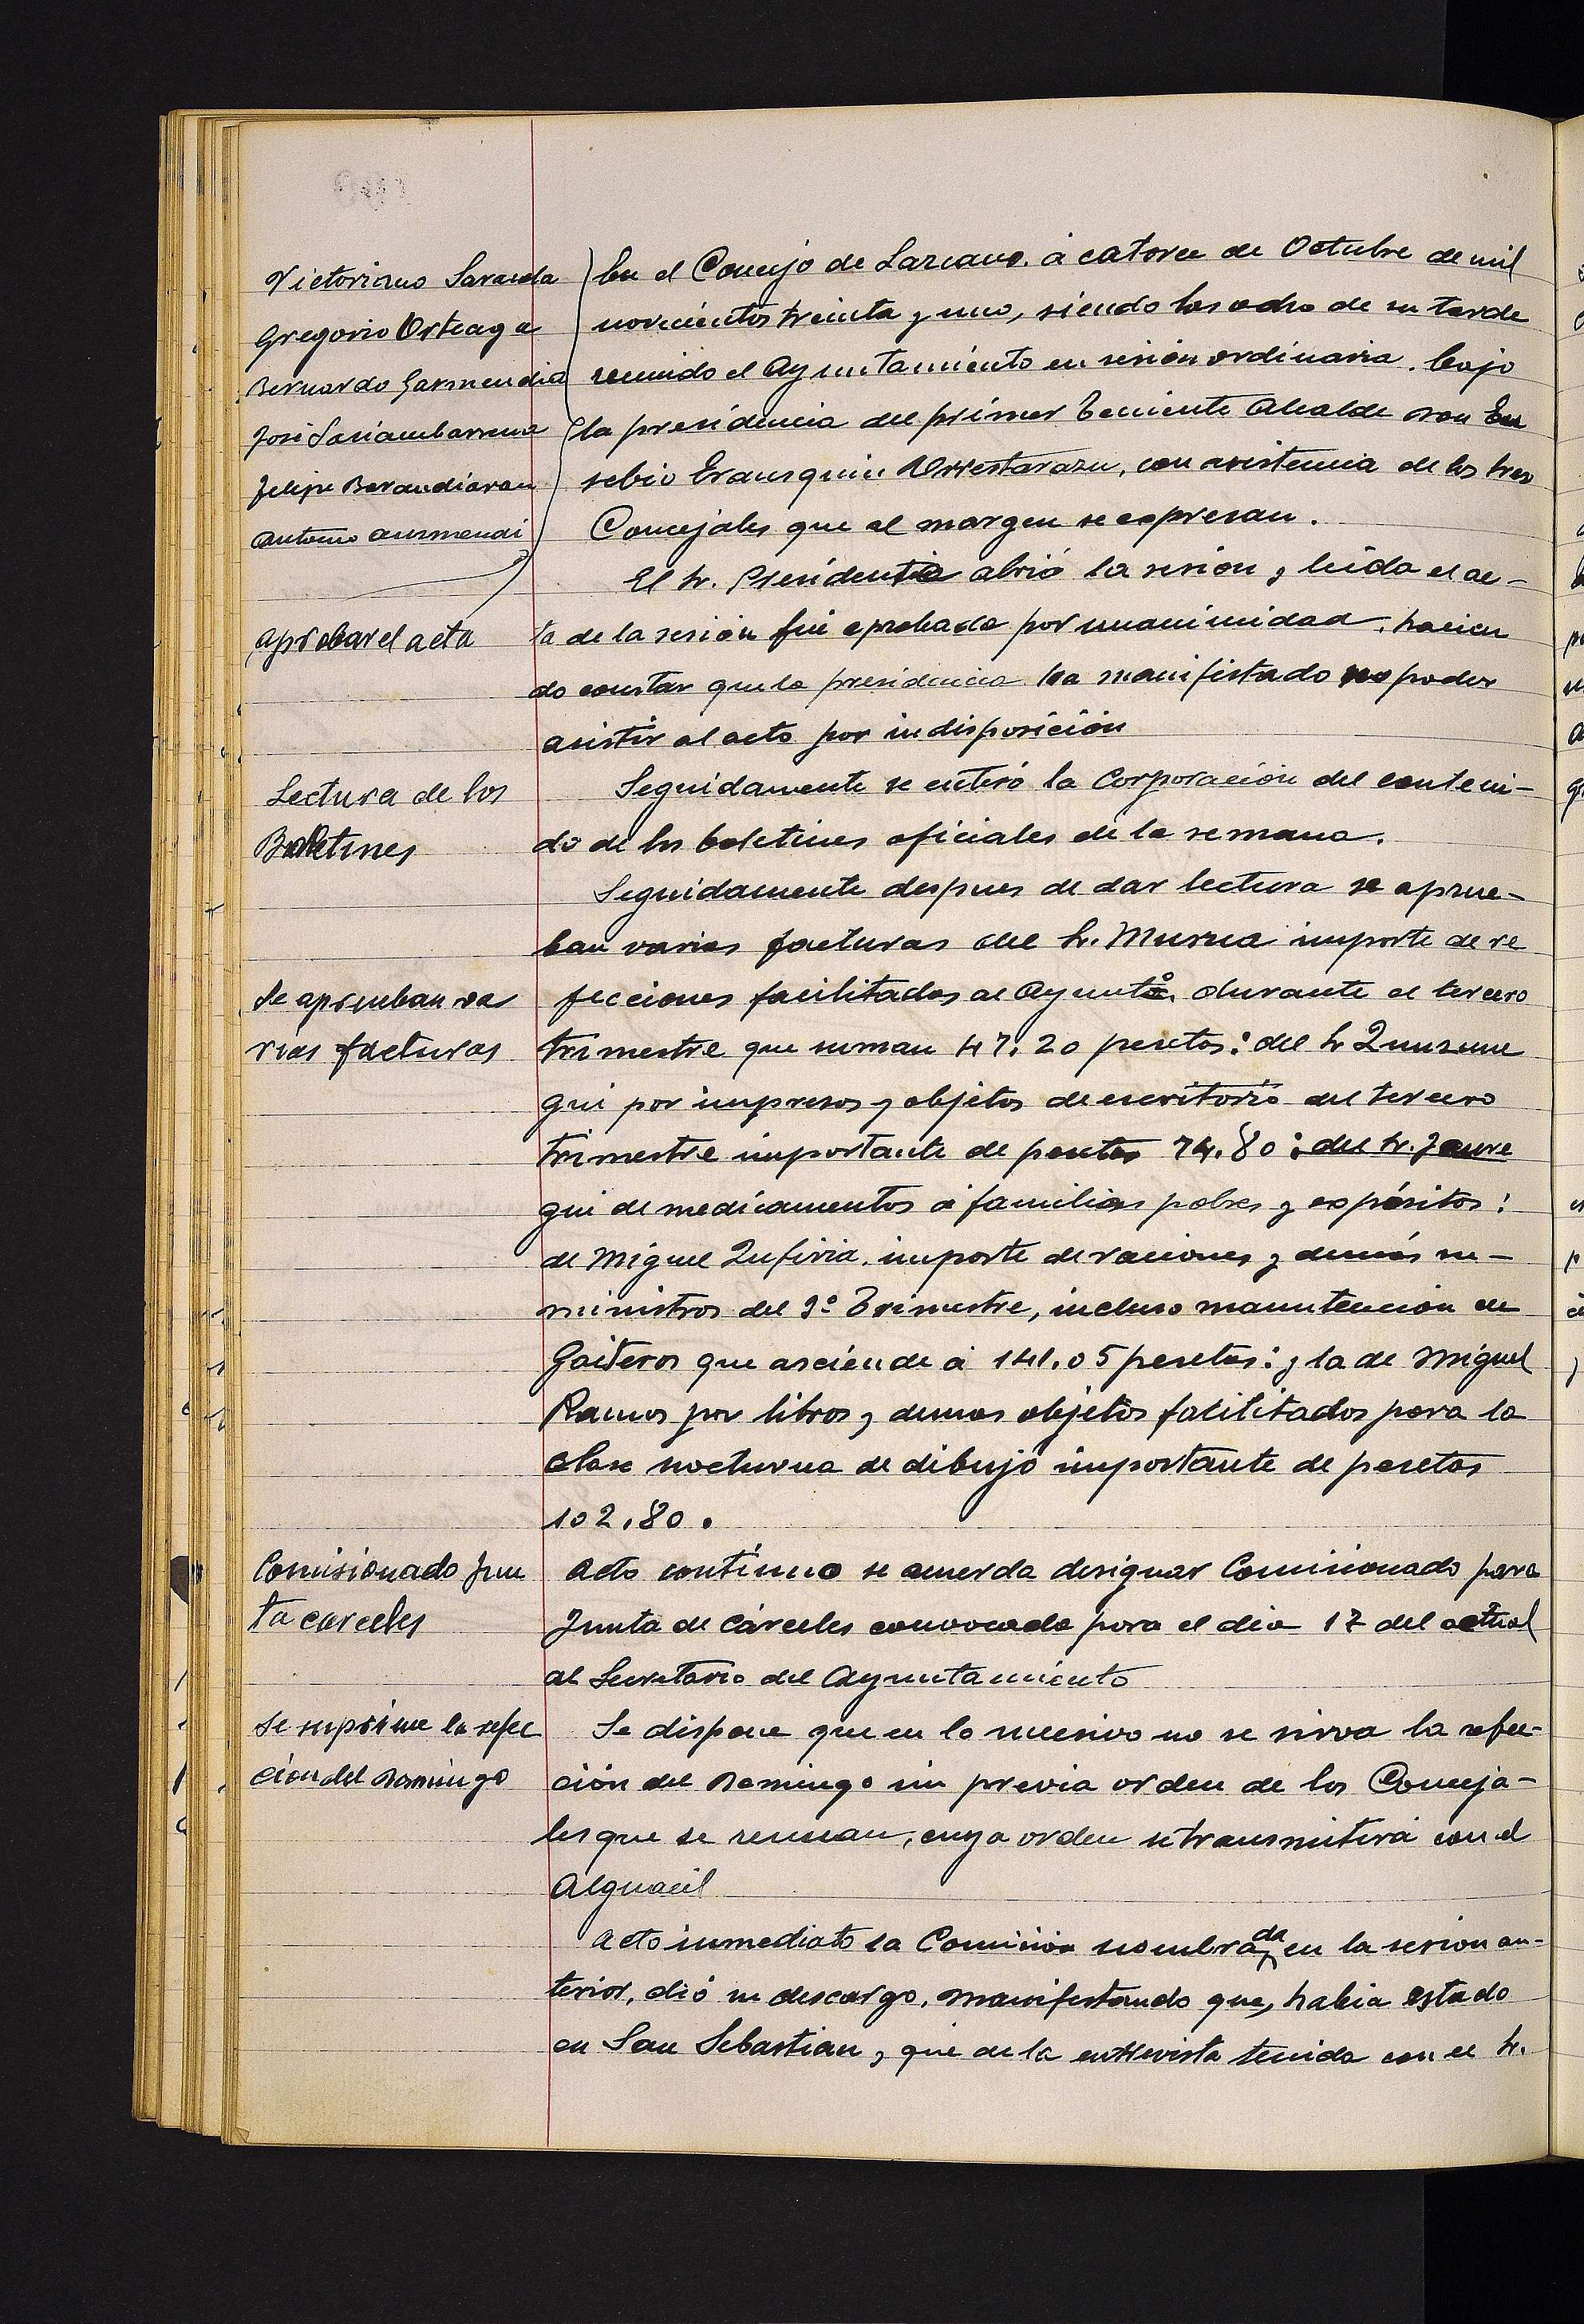 Victoriano Sarasola
Gregorio Orteaga
Bernardo Garmendia
José Sasiambarrena
Felipe Barandiaran
Antonio Ausmendi
En el Concejo de Lazcano. á catorce de Octubre de mil
novecientos treinta y uno, siendo las ocho de su tarde
reunido el Ayuntamiento en sesión ordinaria. bajo
la presidencia del primer Teniente Alcalde Don Eu
sebio Erausquin Urrestarazu, con asistencia de los tres
Concejales que al margen se expresan.
El Sr. Presidente abrió la sesión y leída el ac-
Aprobar el acta
ta de la sesión fué aprobada por unanimidad. hacien
do constar que la presidencia ha manifestado no poder
asistir al acto por indisposición
Lectura de los
Boletines
Seguidamente se enteró la Corporación del conteni-
do de los boletines oficiales de la semana.
Seguidamente despues de dar lectura se aprue-
ban varias facturas del Sr. Murua importe de re
Se aprueban va
rias facturas
fecciones facilitadas al Ayuntº. durante el tercero
trimestre que suman 47.20 pesetas: del Sr
gui por impresos y objetos de escritorio del tercero
trimestre importante de pesetas 74.80: del Sr. Jaure
gui de medicamentos á familias pobres y expósitos:
de Miguel importe de raciones y demás su-
ministros del 3º Trimestre, incluso manutención de
Gaiteros que asciende á 141.05 pesetas: y la de Miguel
Ramos por libros y demas objetos facilitados para la
clase nocturna de dibujo importante de pesetas
102.80.
Comisionado Jun
ta carceles
Acto contínuo se acuerda designar Comisionado para
Junta de Cárceles convocada para el dia 17 del actual
al Secretario del Ayuntamiento
Se suprime la refec
cion del Domingo
Se dispone que en lo sucesivo no se sirva la refec-
ción del Domingo sin previa orden de los Conceja-
les que se reunan, cuya orden se transmitirá con el
Alguacil
Acto inmediato la Comisión nombrada en la sesion an-
terior, dió su descargo, manifestando que, habia estado
en San Sebastian y que de la entrevista tenida con el Sr.